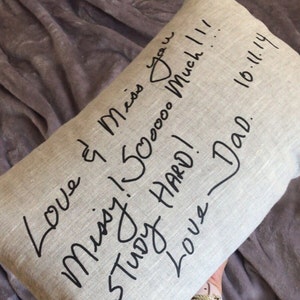 Love & Miss you
Missy! Sooooo Much!!!
STUDY HARD!
Love Dad.
10.11.14